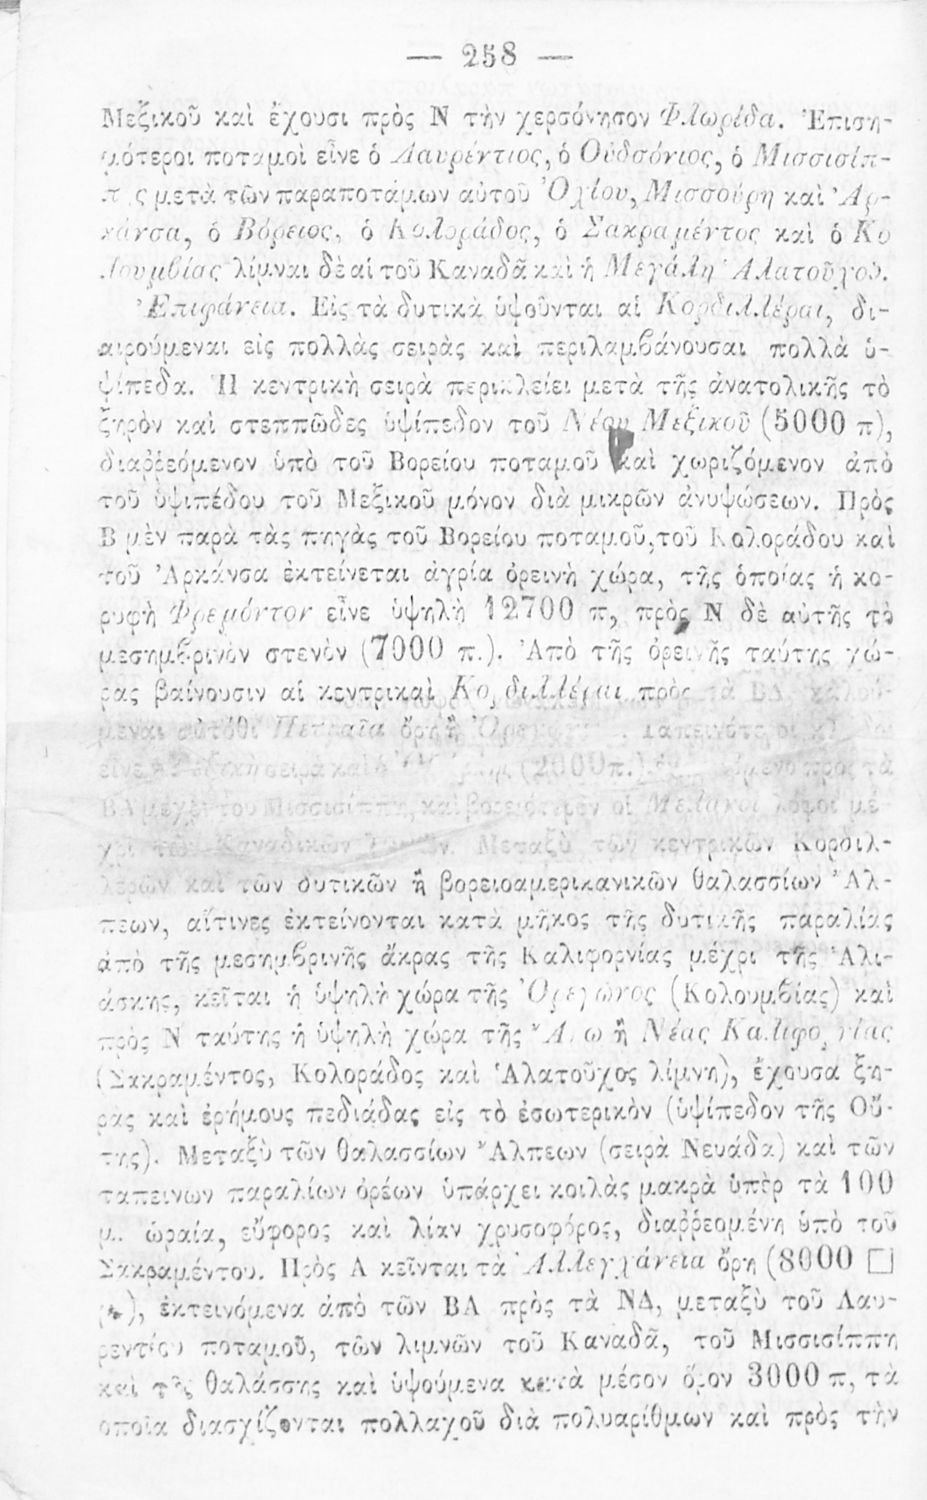 — 258 —
Μεξικοῦ καὶ ἔχουσι πρὸς Ν τὴν χερσόνησον Φλωρίδα. Ἐπιση-
μότεροι ποταμοὶ εἶνε ὁ Λαυρέντιος, ὁ Οὐδσόνιος, ὁ Μισσισίπ-
π ς μετὰ τῶν παραποτάμων αὐτοῦ Ὀχίου, Μισσούρη καὶ Ἀρ-
κάνσα, ὁ Βόρειος, ὁ Κολοράδος, ὁ Σακραμέντος καὶ ὁ Κο
λουμβίας λίμναι δὲ αἱ τοῦ Καναδᾶ καὶ ἡ Μεγάλη Ἁλατοῦχος.
Ἐπιφάνεια. Εἰς τὰ δυτικὰ ὑψοῦνται αἱ Κορδιλλέραι, δι-
αιρούμεναι εἰς πολλὰς σειρὰς καὶ περιλαμβάνουσαι πολλὰ ὑ-
ψίπεδα. Ἡ κεντρικὴ σειρὰ περικλείει μετὰ τῆς ἀνατολικῆς τὸ
ξηρὸν καὶ στεππῶδες ὑψίπεδον τοῦ Νέου Μεξικοῦ (5000 π),
διαῤῥεόμενον ὑπὸ τοῦ Βορείου ποταμοῦ καὶ χωριζόμενον ἀπὸ
τοῦ ὑψιπέδου τοῦ Μεξικοῦ μόνον διὰ μικρῶν ἀνυψώσεων. Πρὸς
Β μὲν παρὰ τὰς πηγὰς τοῦ Βορείου ποταμοῦ, τοῦ Κολοράδου καὶ
τοῦ Ἀρκάνσα ἐκτείνεται ἀγρία ὀρεινὴ χώρα, τῆς ὁποίας ἡ κο-
ρυφὴ Φρεμόντον εἶνε ὑψηλὴ 12700 π, πρὸς Ν δὲ αὐτῆς τὸ
μεσημβρινὸν στενὸν (7000 π.). Ἀπὸ τῆς ὀρεινῆς ταύτης χώ-
ρας βαίνουσιν αἱ κεντρικαὶ Κορδιλλέραι πρὸς τὰ ΒΔ, καλού-
μεναι αὐτόθι Πετραῖα ὄρη ἢ
εἶνε σειρὰ καὶ (2000 π.) πρὸς τὰ
ΒΑ μέχρι τοῦ Μισσισίππη, καὶ βορειότερον οἱ Μέλανοι λόφοι μέ-
χρι τῶν Καναδικῶν Μεταξὺ τῶν κεντρικῶν Κορδιλ-
λερῶν καὶ τῶν δυτικῶν ἢ βορειοαμερικανικῶν θαλασσίων Ἄλ-
πεων, αἵτινες ἐκτείνονται κατὰ μῆκος τῆς δυτικῆς παραλίας
ἀπὸ τῆς μεσημβρινῆς ἄκρας τῆς Καλιφορνίας μέχρι τῆς Ἀλι-
άσκης, κεῖται ἡ ὑψηλὴ χώρα τῆς Ὀρεγῶνος (Κολουμβίας) καὶ
πρὸς Ν ταύτης ἡ ὑψηλὴ χώρα τῆς Ἄνω ἢ Νέας Καλιφορνίας
(Σακραμέντος, Κολοράδος καὶ Ἁλατοῦχος λίμνη), ἔχουσα ξη-
ρὰς καὶ ἐρήμους πεδιάδας εἰς τὸ ἐσωτερικὸν (ὑψίπεδον τῆς Οὔ-
της). Μεταξὺ τῶν θαλασσίων Ἄλπεων (σειρὰ Νευάδα) καὶ τῶν
ταπεινων παραλίων ὀρέων ὑπάρχει κοιλὰς μακρὰ ὑπὲρ τὰ 100
μ. ὡραία, εὔφορος καὶ λίαν χρυσοφόρος, διαῤῥεομένη ὑπὸ τοῦ
Σακραμέντου. Πρὸς Α κεῖνται τὰ Ἀλλεγχάνεια ὄρη (8000 □
μ), ἐκτεινόμενα ἀπὸ τῶν ΒΑ πρὸς τὰ ΝΔ, μεταξὺ τοῦ Λαυ-
ρεντίου ποταμοῦ, τῶν λιμνῶν τοῦ Καναδᾶ, τοῦ Μισσισίππη
καὶ τῆς θαλάσσης καὶ ὑψούμενα κατὰ μέσον ὅρον 3000 π, τὰ
ὁποῖα διασχίζονται πολλαχοῦ διὰ πολυαρίθμων καὶ πρὸς τὴν